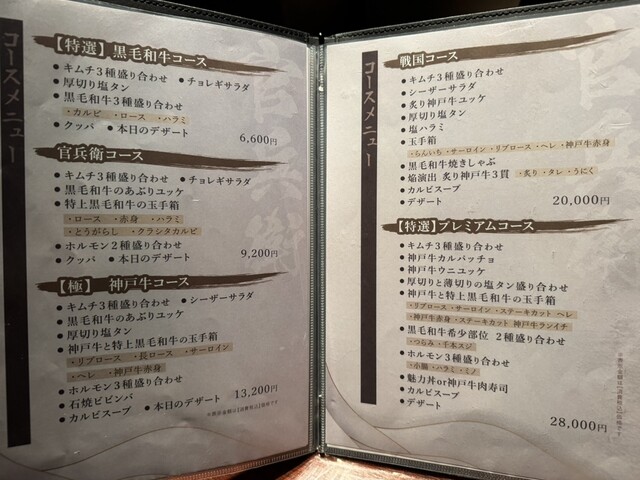 コースメニュー
【特選】黒毛和牛コース
• キムチ3種盛り合わせ • チョレギサラダ
• 厚切り塩タン
• 黒毛和牛3種盛り合わせ
・カルビ ・ロース ・ハラミ
• クッパ • 本日のデザート
6,600円
官兵衛コース
• キムチ3種盛り合わせ • チョレギサラダ
• 黒毛和牛のあぶりユッケ
• 特上黒毛和牛の玉手箱
・ロース ・赤身 ・ハラミ
・とうがらし ・クラシタカルビ
• ホルモン2種盛り合わせ
• クッパ • 本日のデザート
9,200円
【極】 神戸牛コース
• キムチ3種盛り合わせ • シーザーサラダ
• 黒毛和牛のあぶりユッケ
• 厚切り塩タン
• 神戸牛と特上黒毛和牛の玉手箱
・リブロース ・長ロース ・サーロイン
・ヘレ ・神戸牛赤身
• ホルモン3種盛り合わせ
• 石焼ビビンバ
• カルビスープ • 本日のデザート
13,200円
コースメニュー
戦国コース
• キムチ3種盛り合わせ
• シーザーサラダ
• 炙り神戸牛ユッケ
• 厚切り塩タン
• 塩ハラミ
• 玉手箱
・らんいち ・サーロイン ・リブロース ・ヘレ ・神戸牛赤身
• 黒毛和牛焼きしゃぶ
• 焔演出 炙り神戸牛3貫 ・炙り ・タレ ・うにく
• カルビスープ
• デザート
20,000円
【特選】プレミアムコース
• キムチ3種盛り合わせ
• 神戸牛カルパッチョ
• 神戸牛ウニユッケ
• 厚切りと薄切りの塩タン盛り合わせ
• 神戸牛と特上黒毛和牛の玉手箱
・リブロース ・サーロイン ・ステーキカット ヘレ
・神戸牛赤身 ・ステーキカット 神戸牛ランイチ
• 黒毛和牛希少部位 2種盛り合わせ
・つらみ ・千本スジ
• ホルモン3種盛り合わせ
・小腸 ・ハラミ ・ミノ
• 魅力丼or神戸牛肉寿司
• カルビスープ
• デザート
28,000円